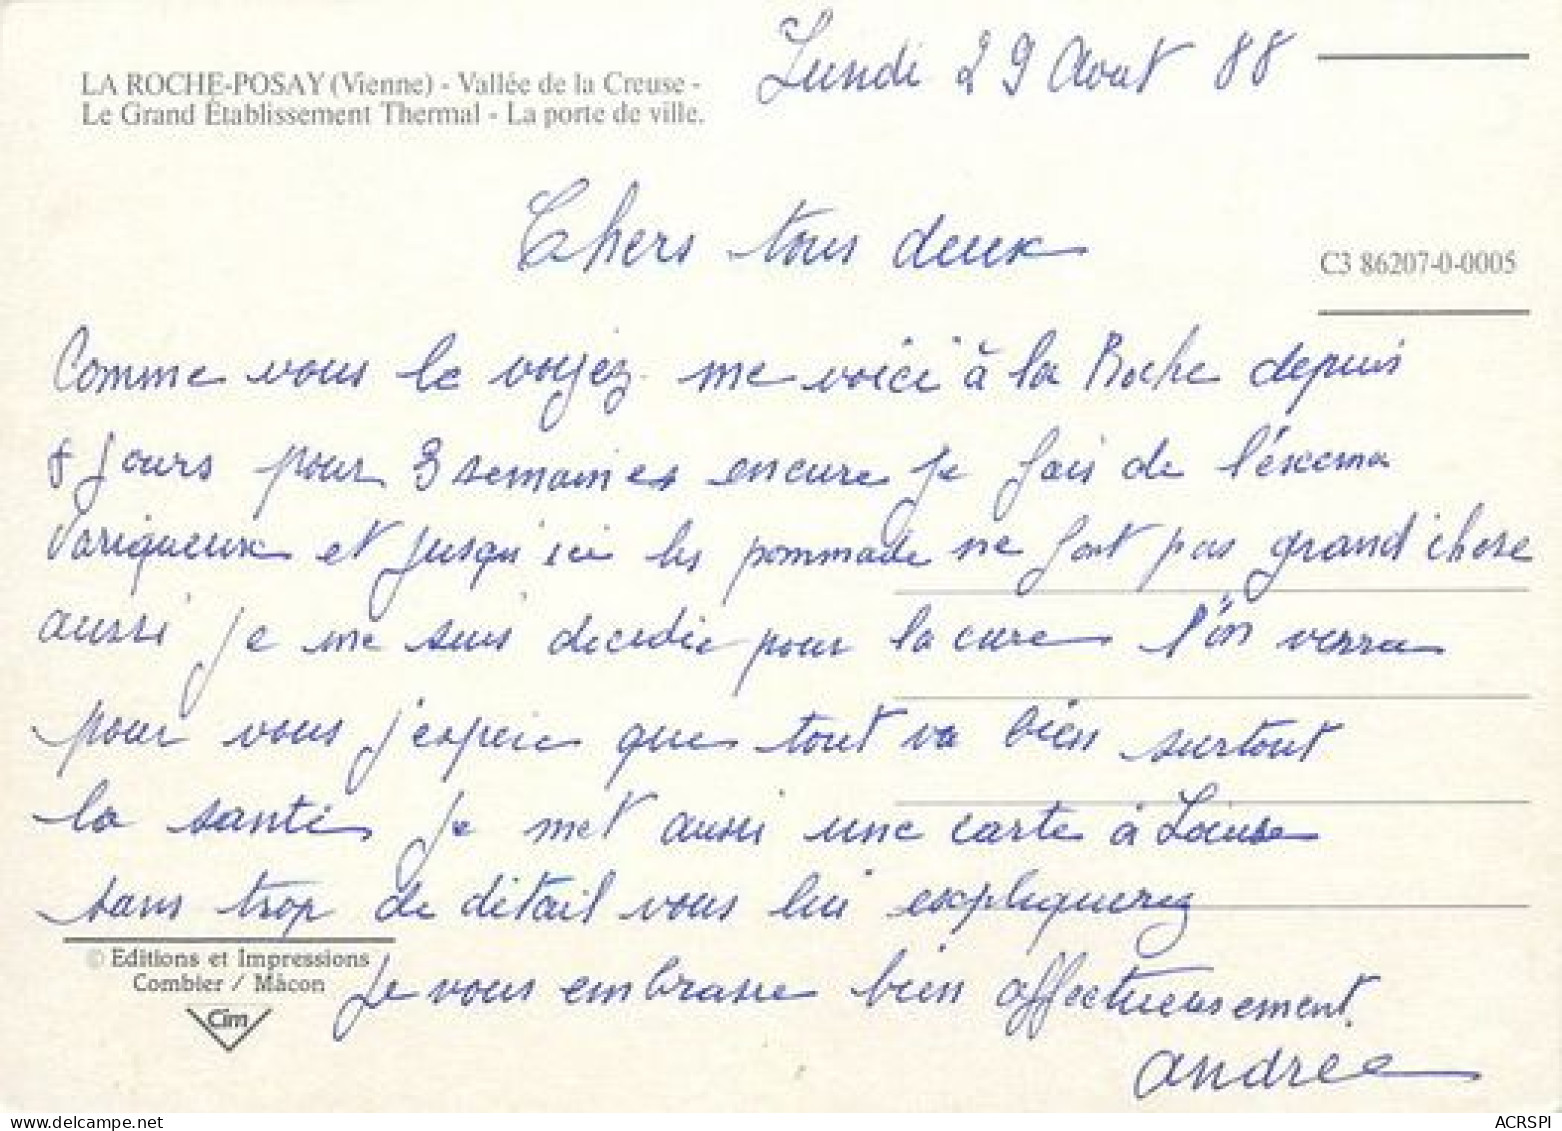 Lundi 29 Aout 88
LA ROCHE-POSAY (Vienne) - Vallée de la Creuse -
Le Grand Établissement Thermal - La porte de ville.
Chers tous deux
C3 86207-0-0005
Comme vous le voyez me voici à la Roche depuis
8 jours pour 3 semaines encure je fais de l'éxcema
variqueux et jusqu'ici les pommade ne font pas grand chose
aussi je me suis decidée pour la cure l'on verra
pour vous j'espere que tout va bien surtout
la santé je met aussi une carte à Louise
sans trop de détail vous lui expliquerez
© Editions et Impressions
Combier / Mâcon
Cim
je vous embrasse bien affectueusement.
andree
delcampe.net
ACRSPI